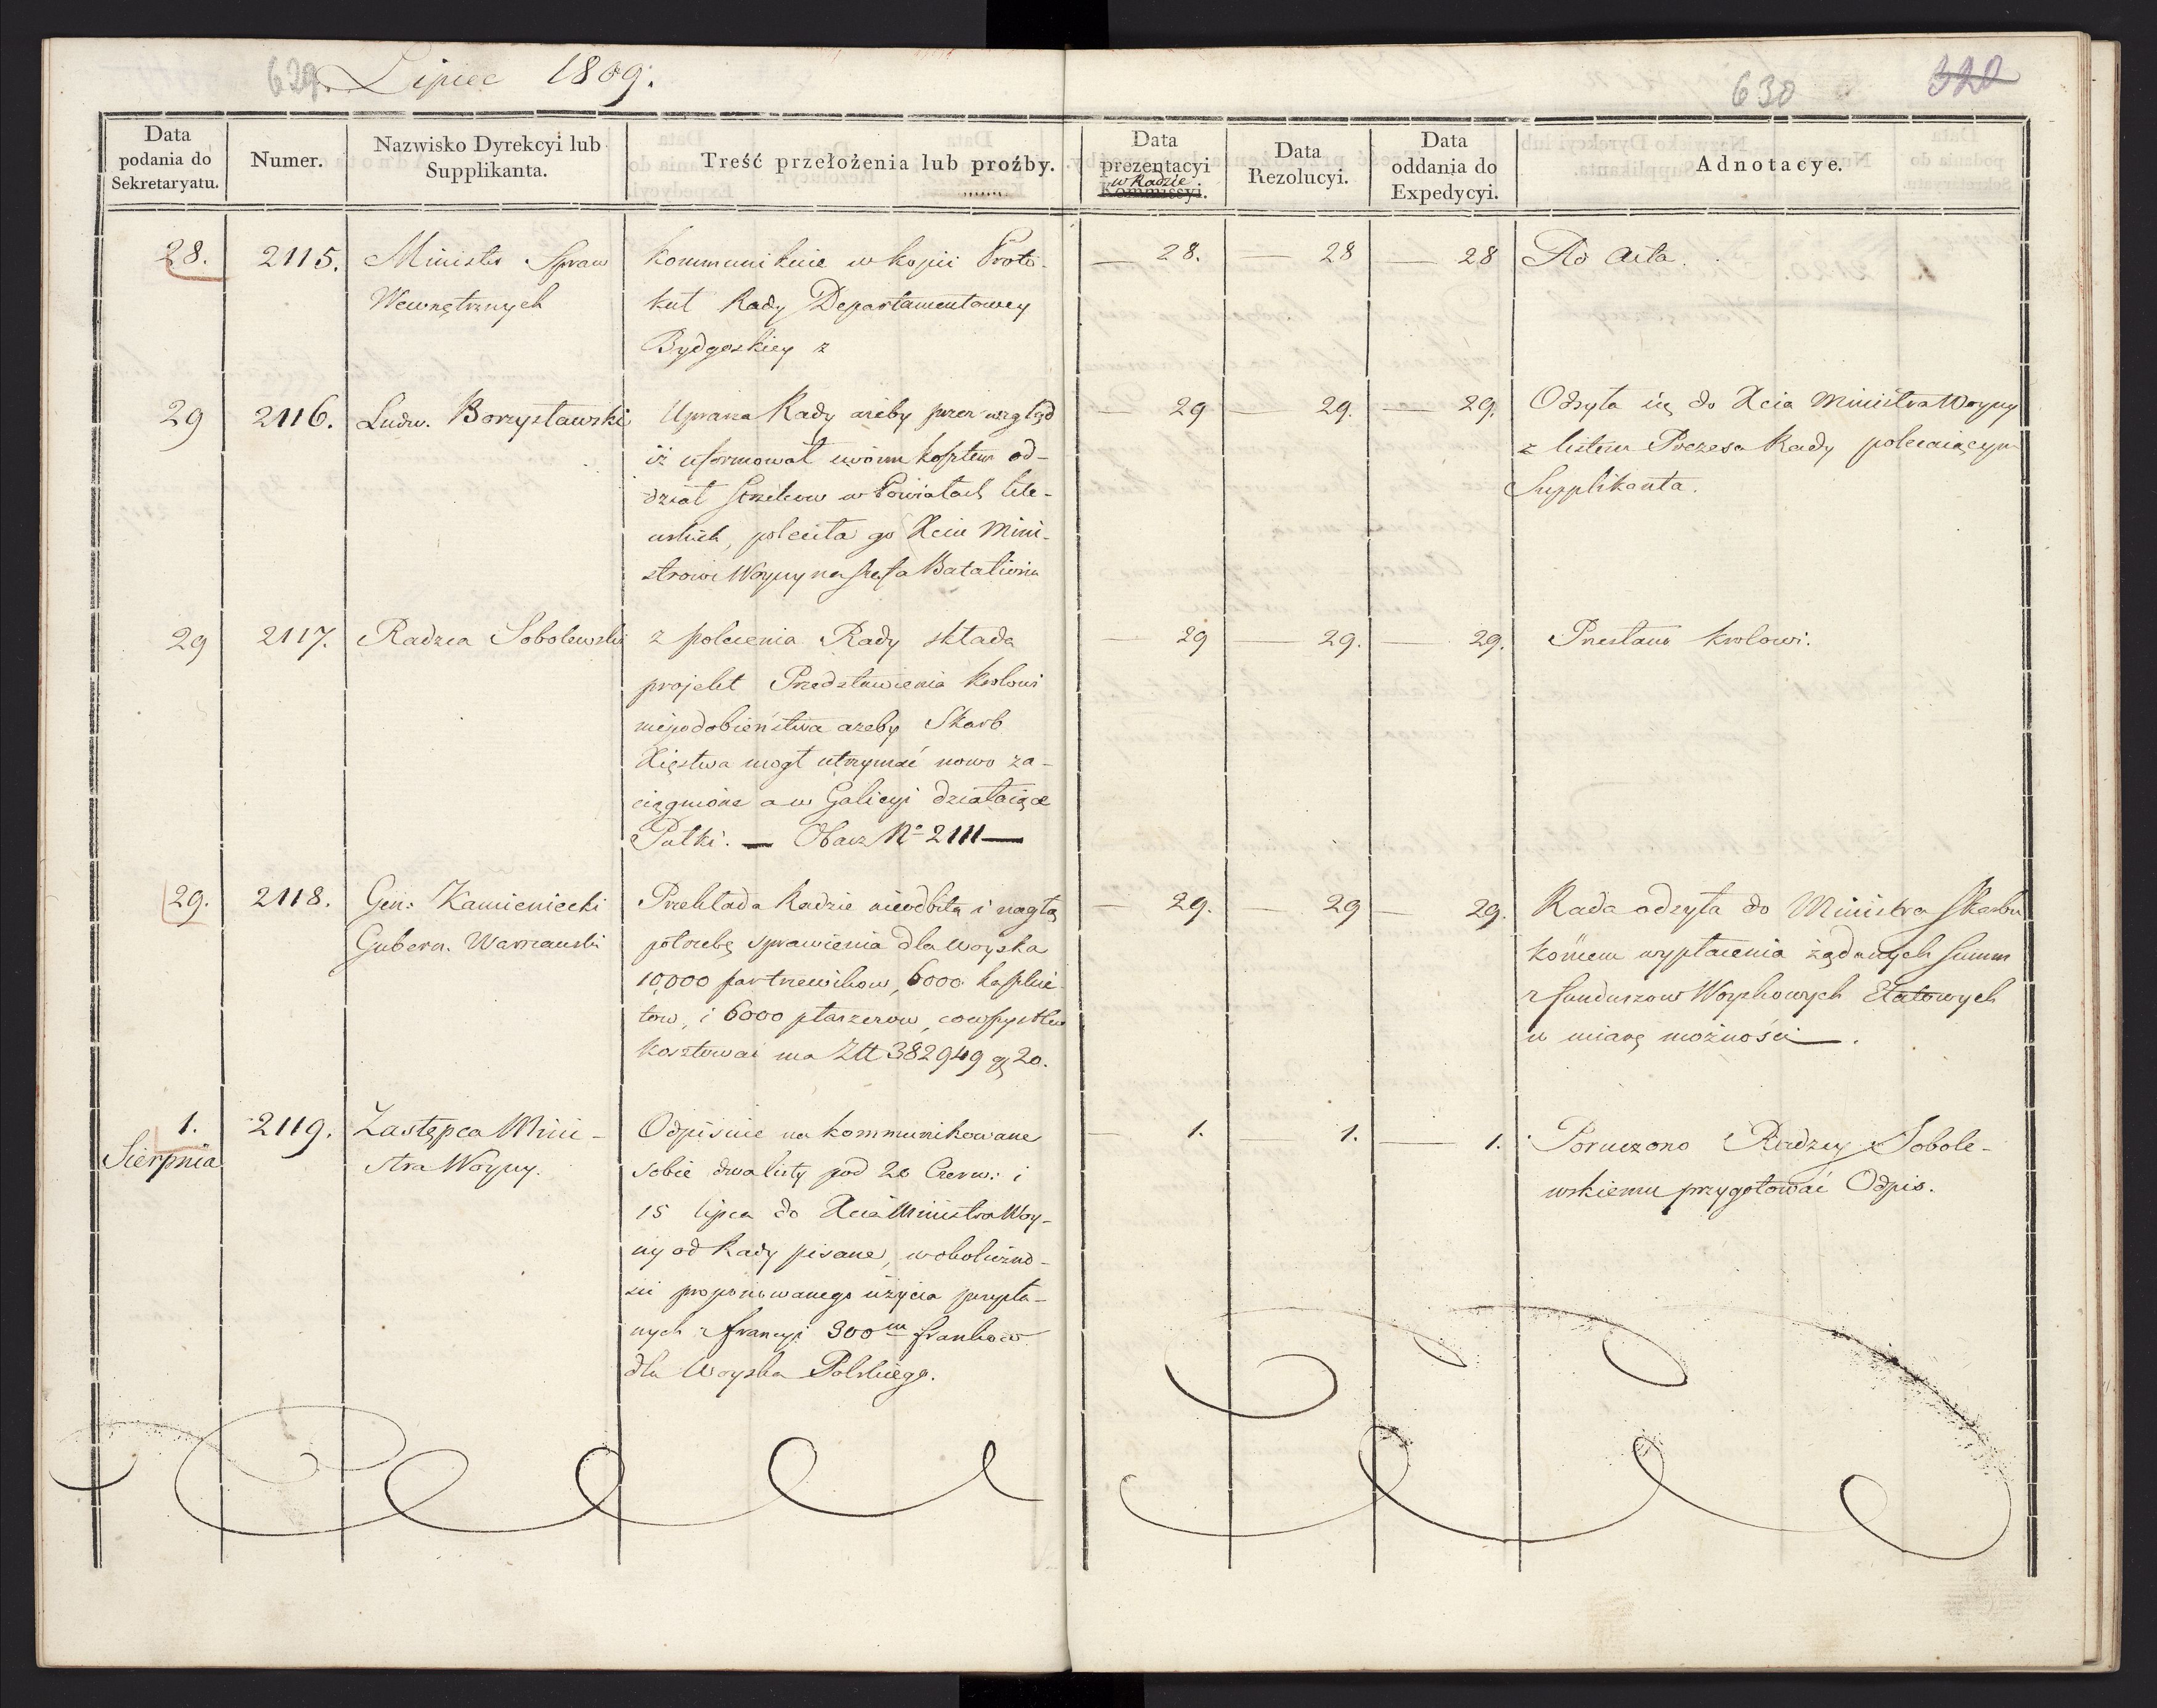 629. Lipiec 1809.
630 320
Data podania do Sekretaryatu.
Numer.
Nazwisko Dyrekcyi lub Supplikanta.
Treść przełożenia lub proźby.
Data prezentacyi Kommissyi. w Radzie
Data Rezolucyi.
Data oddania do Expedycyi.
Adnotacye.
28. 2115. Minister Spraw
Wewnętrznych
kommunikuie w kopii Proto-
kuł Rady Departamentowey
Bydgoskiey z
28. 28 28 Ad Acta.
29 2116. Ludw. Borzysławski
Uprasza Rady ażeby przez wzgląd
iż uformował swoim kosztem od-
dział Strzelcow w Powiatach Lite-
wskich, poleciła go Xciu Mini-
strowi Woyny na szefa Batalionu
29 29. 29. Odsyła się do Xcia Ministra Woyny
z listem Prezesa Rady polecaiącym
Supplikanta.
29 2117. Radzca Sobolewski
z polecenia Rady składa
projekt Przedstawienia krolowi
niepodobieństwa ażeby Skarb
Xięstwa mogł utrzymać nowo za-
ciągnione a w Galicyi działaiące
Pułki. — Obacz No 2111 —
29 29. 29. Przesłano krolowi.
29. 2118. Gen: Kamieniecki
Gubern. Warszawski
Przekłada Radzie nieodbitą i nagłą
potrzebę sprawienia dla woyska
10,000 par trzewikow, 6000 kaszkie-
tow, i 6000 płaszczow, co wszystko
kosztować ma Złt 382949 gr 20.
29. 29 29. Rada odsyła do Ministra Skarbu
końcem wypłacenia żądanych summ
z funduszow Woyskowych Etatowych
w miarę możności —.
1. Sierpnia 2119. Zastępca Mini-
stra Woyny.
Odpisuie na kommunikowane
sobie dwa listy pod 20 Czerw: i
15 lipca do Xcia Ministra Woy-
ny od Rady pisane, w okoliczno-
ści proponowanego użycia przysła-
nych z francyi 300m frankow
dla Woyska Polskiego.
1. 1. 1. Poruczono Radzcy Sobole-
wskiemu przygotować Odpis.